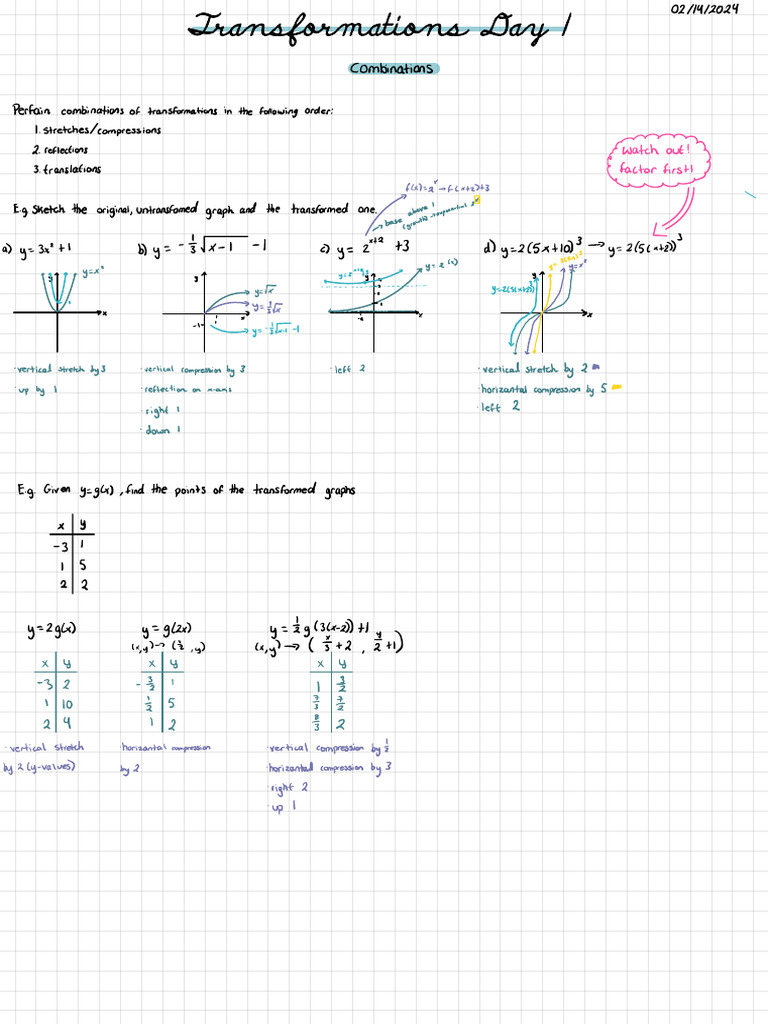 02/14/2024
Transformations Day 1
Combinations
Perfain combinations of transformations in the following order:
1. stretches/compressions
2. reflections
3. translations
Watch out!
factor first!
f(x) = 2ˣ → f(x+2)+3
base above 1
E.g Sketch the original, untransfomed graph and the transformed one.
a) y = 3x² + 1
b) y = -1/3 √(x-1) - 1
c) y = 2^(x+2) + 3
d) y = 2(5x+10)³ → y = 2(5(x+2))³
y = x²
y
x
y
y = √x
y = 1/3 √x
y = -1/3 √(x-1) - 1
-1
1
x
y
x
-2
y
y = 2(5(x+2))³
x
· vertical stretch by 3
· up by 1
· vertical compression by 3
· reflection on x-axis
· right 1
· down 1
· left 2
· vertical stretch by 2
· horizantal compression by 5
· left 2
E.g. Given y = g(x), find the points of the transformed graphs
x y
-3 1
1 5
2 2
y = 2g(x)
x y
-3 2
1 10
2 4
· vertical stretch
by 2 (y-values)
y = g(2x)
(x,y) → (x/2, y)
x y
-3/2 1
1/2 5
1 2
· horizantal compression
by 2
y = 1/2 g(3(x-2)) + 1
(x,y) → (x/3 + 2, y/2 + 1)
x y
1 3/2
7/3 7/2
8/3 2
· vertical compression by 1/2
· horizantal compression by 3
· right 2
· up 1